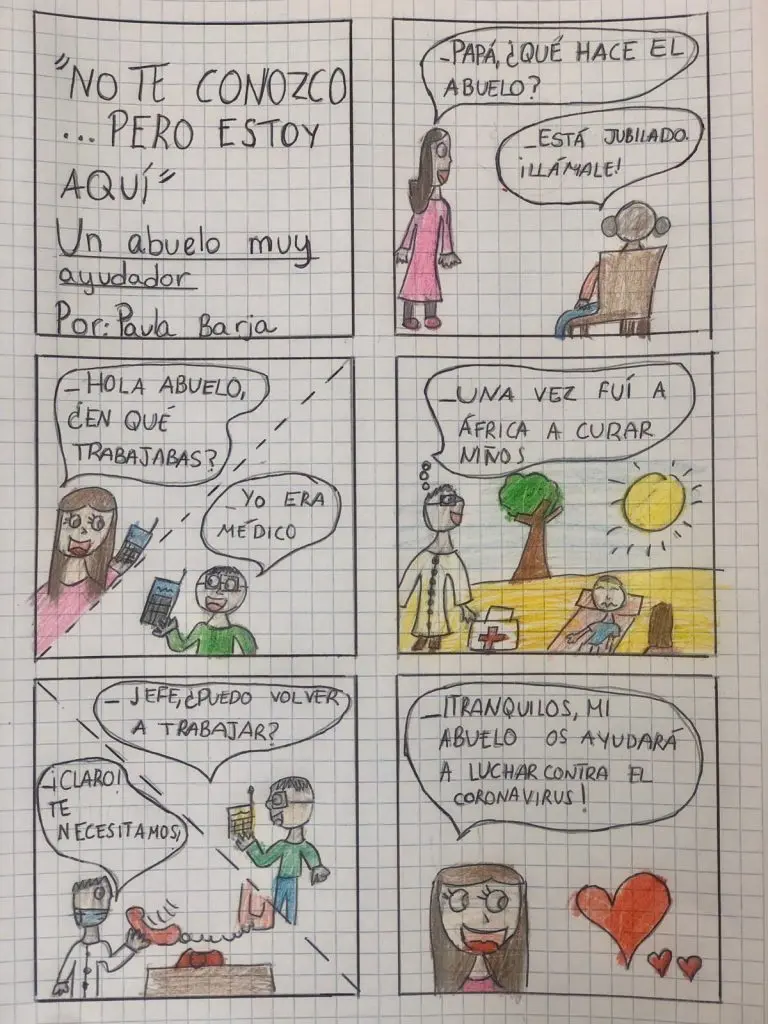 "NO TE CONOZCO
... PERO ESTOY
AQUÍ"
Un abuelo muy
ayudador
Por: Paula Barja
_PAPÁ, ¿QUÉ HACE EL
ABUELO?
_ESTÁ JUBILADO.
¡LLÁMALE!
_HOLA ABUELO,
¿EN QUÉ
TRABAJABAS?
_YO ERA
MÉDICO
_UNA VEZ FUÍ A
ÁFRICA A CURAR
NIÑOS
_JEFE, ¿PUEDO VOLVER
A TRABAJAR?
_¡CLARO!
TE
NECESITAMOS,
_¡TRANQUILOS, MI
ABUELO OS AYUDARÁ
A LUCHAR CONTRA EL
CORONAVIRUS!